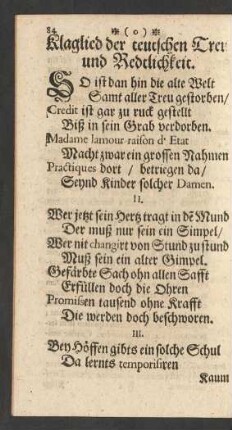 84 ❊ ( o ) ❊
Klaglied der teutschen Treu
und Redtlichkeit.
SO ist dan hin die alte Welt
Samt aller Treu gestorben/
Credit ist gar zu ruck gestellt
Biß in sein Grab verdorben.
Madame lamour raison d' Etat
Macht zwar ein grossen Nahmen
Practiques dort / betriegen da/
Seynd Kinder solcher Damen.
II.
Wer jetzt sein Hertz tragt in dē Mund
Der muß nur sein ein Simpel/
Wer nit changirt von Stund zu stund
Muß sein ein alter Gimpel.
Gefärbte Sach ohn allen Safft
Erfüllen doch die Ohren
Promißen tausend ohne Krafft
Die werden doch beschworen.
III.
Bey Höffen gibts ein solche Schul
Da lernts temporisiren
Kaum